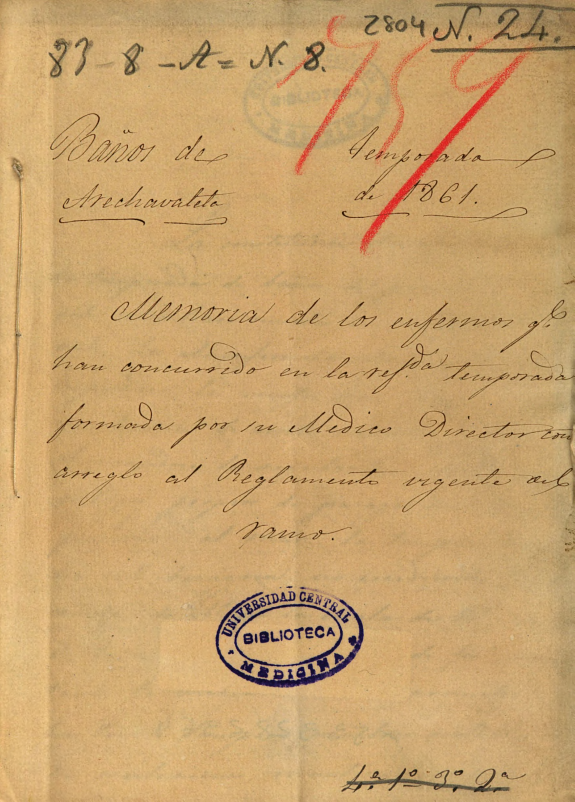 2804 N. 24.
83-8-A=N. 8.
959
BIBLIOTECA
Baños de
Arechavaleta
Temporada
de 1861.
Memoria de los enfermos qe.
han concurrido en la refda. temporada
formada por su Medico Director con
arreglo al Reglamento vigente del
ramo.
UNIVERSIDAD CENTRAL
BIBLIOTECA
MEDICINA
4ª 1º 3º 2ª